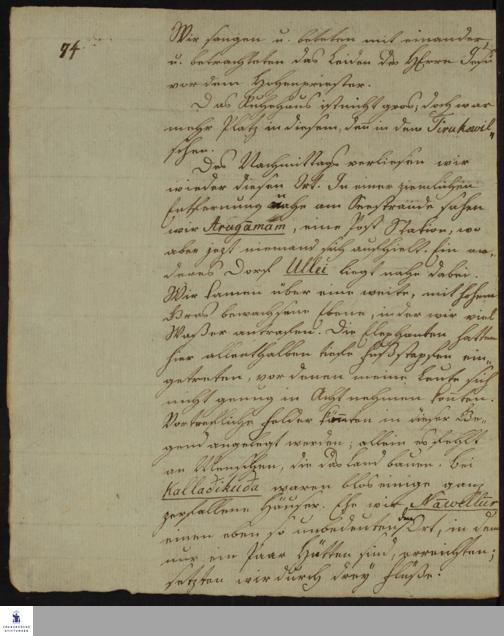 94
Wir sangen u. beteten mit einander
u. betrachteten das Leiden des HErrn Jesu
vor dem Hohenpriester.
Das Ruhehaus ist nicht gros; doch war
mehr Platz in diesem, den in dem Tirukowil„
schen.
Des Nachmittags verliesen wir
wieder diesen Ort. In einer ziemlichen
Entfernung nahe am Seestrande sahen
wir Arugamam, eine Post Station, wo
aber jezt niemand sich aufhielt. Ein an„
deres Dorf Ullei liegt nahe dabei.
Wir kamen über eine weite, mit hohem
Gras bewachsene Ebene, in der wir viel
Waßer antrafen. Die Elephanten hatten
hier allenthalben tiefe Fußstapfen ein„
getreten, vor denen meine Leute sich
nicht genug in Acht nehmen konten.
Vortrefliche Felder könten in dieser Ge„
gend angelegt werden; allein es fehlt
an Menschen, die das Land bauen. Bei
Kalladikuda waren blos einige ganz
zerfallene Häuser. Ehe wir Nawellur
einen eben so unbedeutenden Ort, in dem
nur ein Paar Hütten sind, erreichten;
setzten wir durch drey Flüße.
FRANCKESCHE
STIFTUNGEN